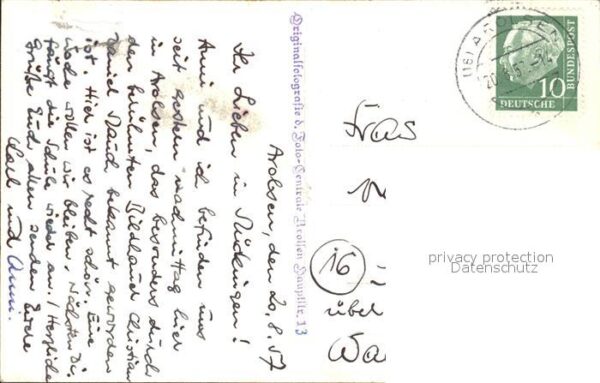 Arolsen, den 20.8.57
Ihr Lieben in Mückingen!
Anni und ich befinden uns
seit gestern nachmittag hier
in Arolsen, das besonders durch
den berühmten Bildhauer Christian
Daniel Rauch bekannt geworden
ist. Hier ist es recht schön. Eine
Woche wollen wir bleiben. Nächsten Di.
fängt die Schule wieder an. Herzliche
Grüße Euch allen senden Euere
Karl und Anni.
Originalfotografie d. Foto-Centrale Arolsen Hauptstr. 13
(16) AROLSEN
20.
10
DEUTSCHE
BUNDESPOST
Frau
16
über
Wa
privacy protection
Datenschutz